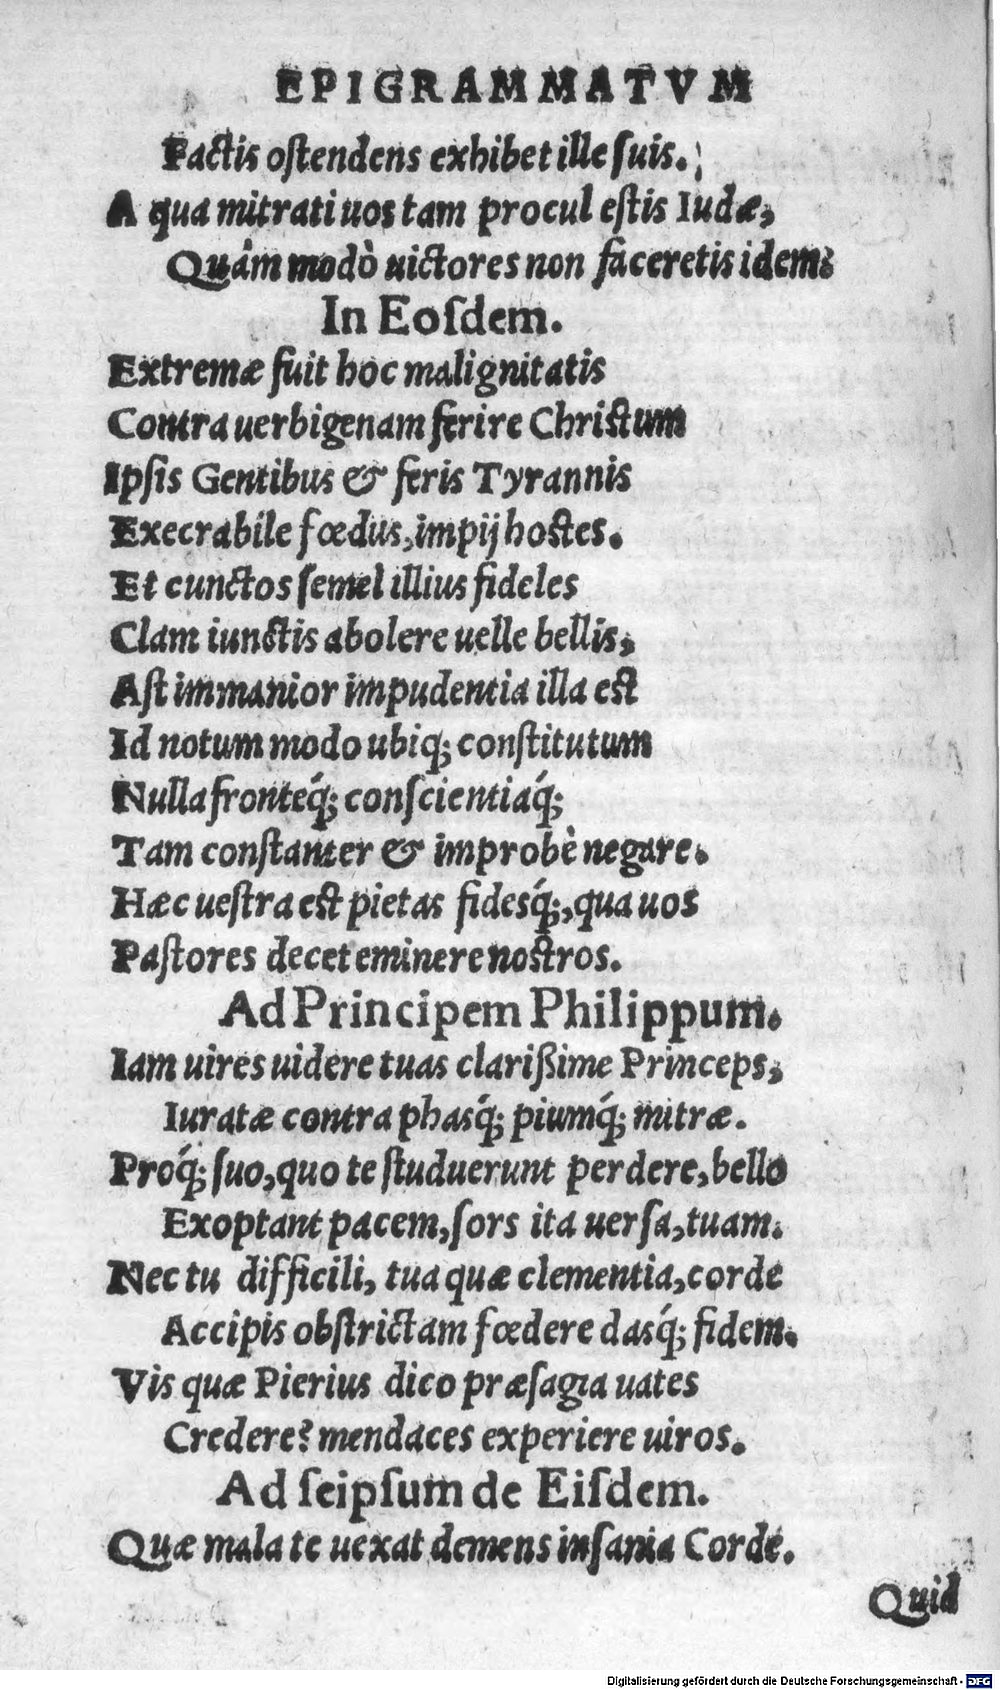 EPIGRAMMATVM
Pactis oſtendens exhibet ille ſuis.
A qua mitrati uos tam procul eſtis Iudæ,
Quâm modò uictores non faceretis idem.
In Eoſdem.
Extremæ fuit hoc malignitatis
Contra uerbigenam ferire Chriſtum
Ipſis Gentibus & feris Tyrannis
Execrabile fœdus, impij hoſtes.
Et cunctos ſemel illius fideles
Clam iunctis abolere uelle bellis,
Aſt immanior impudentia illa eſt
Id notum modo ubiq; conſtitutum
Nulla fronteq́; conſcientiaq́;
Tam conſtanter & improbè negare.
Hæc ueſtra eſt pietas fidesq́;, qua uos
Paſtores decet eminere noſtros.
Ad Principem Philippum.
Iam uires uidere tuas clarißime Princeps,
Iuratæ contra phasq́; piumq́; mitræ.
Proq́; ſuo, quo te ſtuduerunt perdere, bello
Exoptant pacem, ſors ita uerſa, tuam.
Nec tu difficili, tua quæ clementia, corde
Accipis obſtrictam fœdere dasq́; fidem.
Vis quæ Pierius dico præſagia uates
Credere? mendaces experiere uiros.
Ad ſeipſum de Eiſdem.
Quæ mala te uexat demens inſania Corde.
Quid
Digitalisierung gefördert durch die Deutsche Forschungsgemeinschaft - DFG